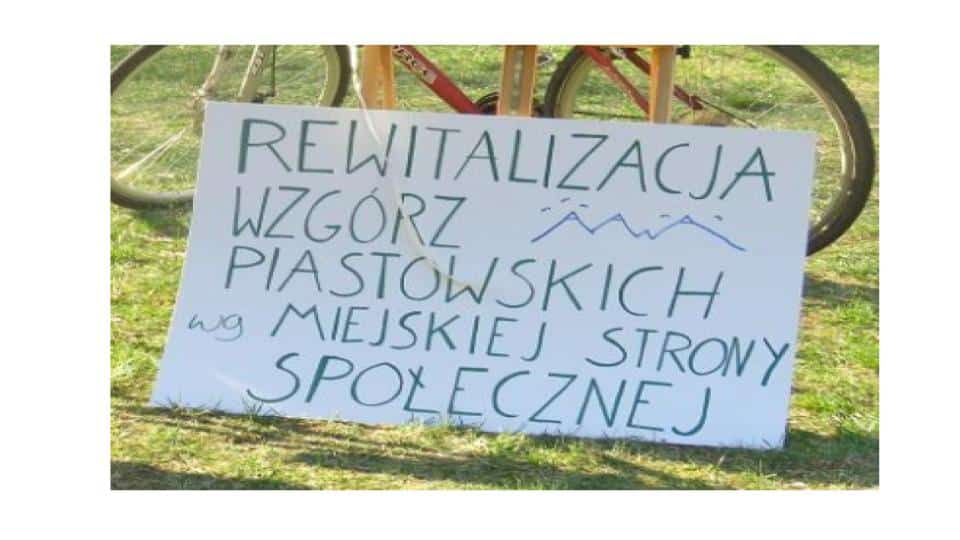 REWITALIZACJA
WZGÓRZ
PIASTOWSKICH
wg MIEJSKIEJ STRONY
SPOŁECZNEJ